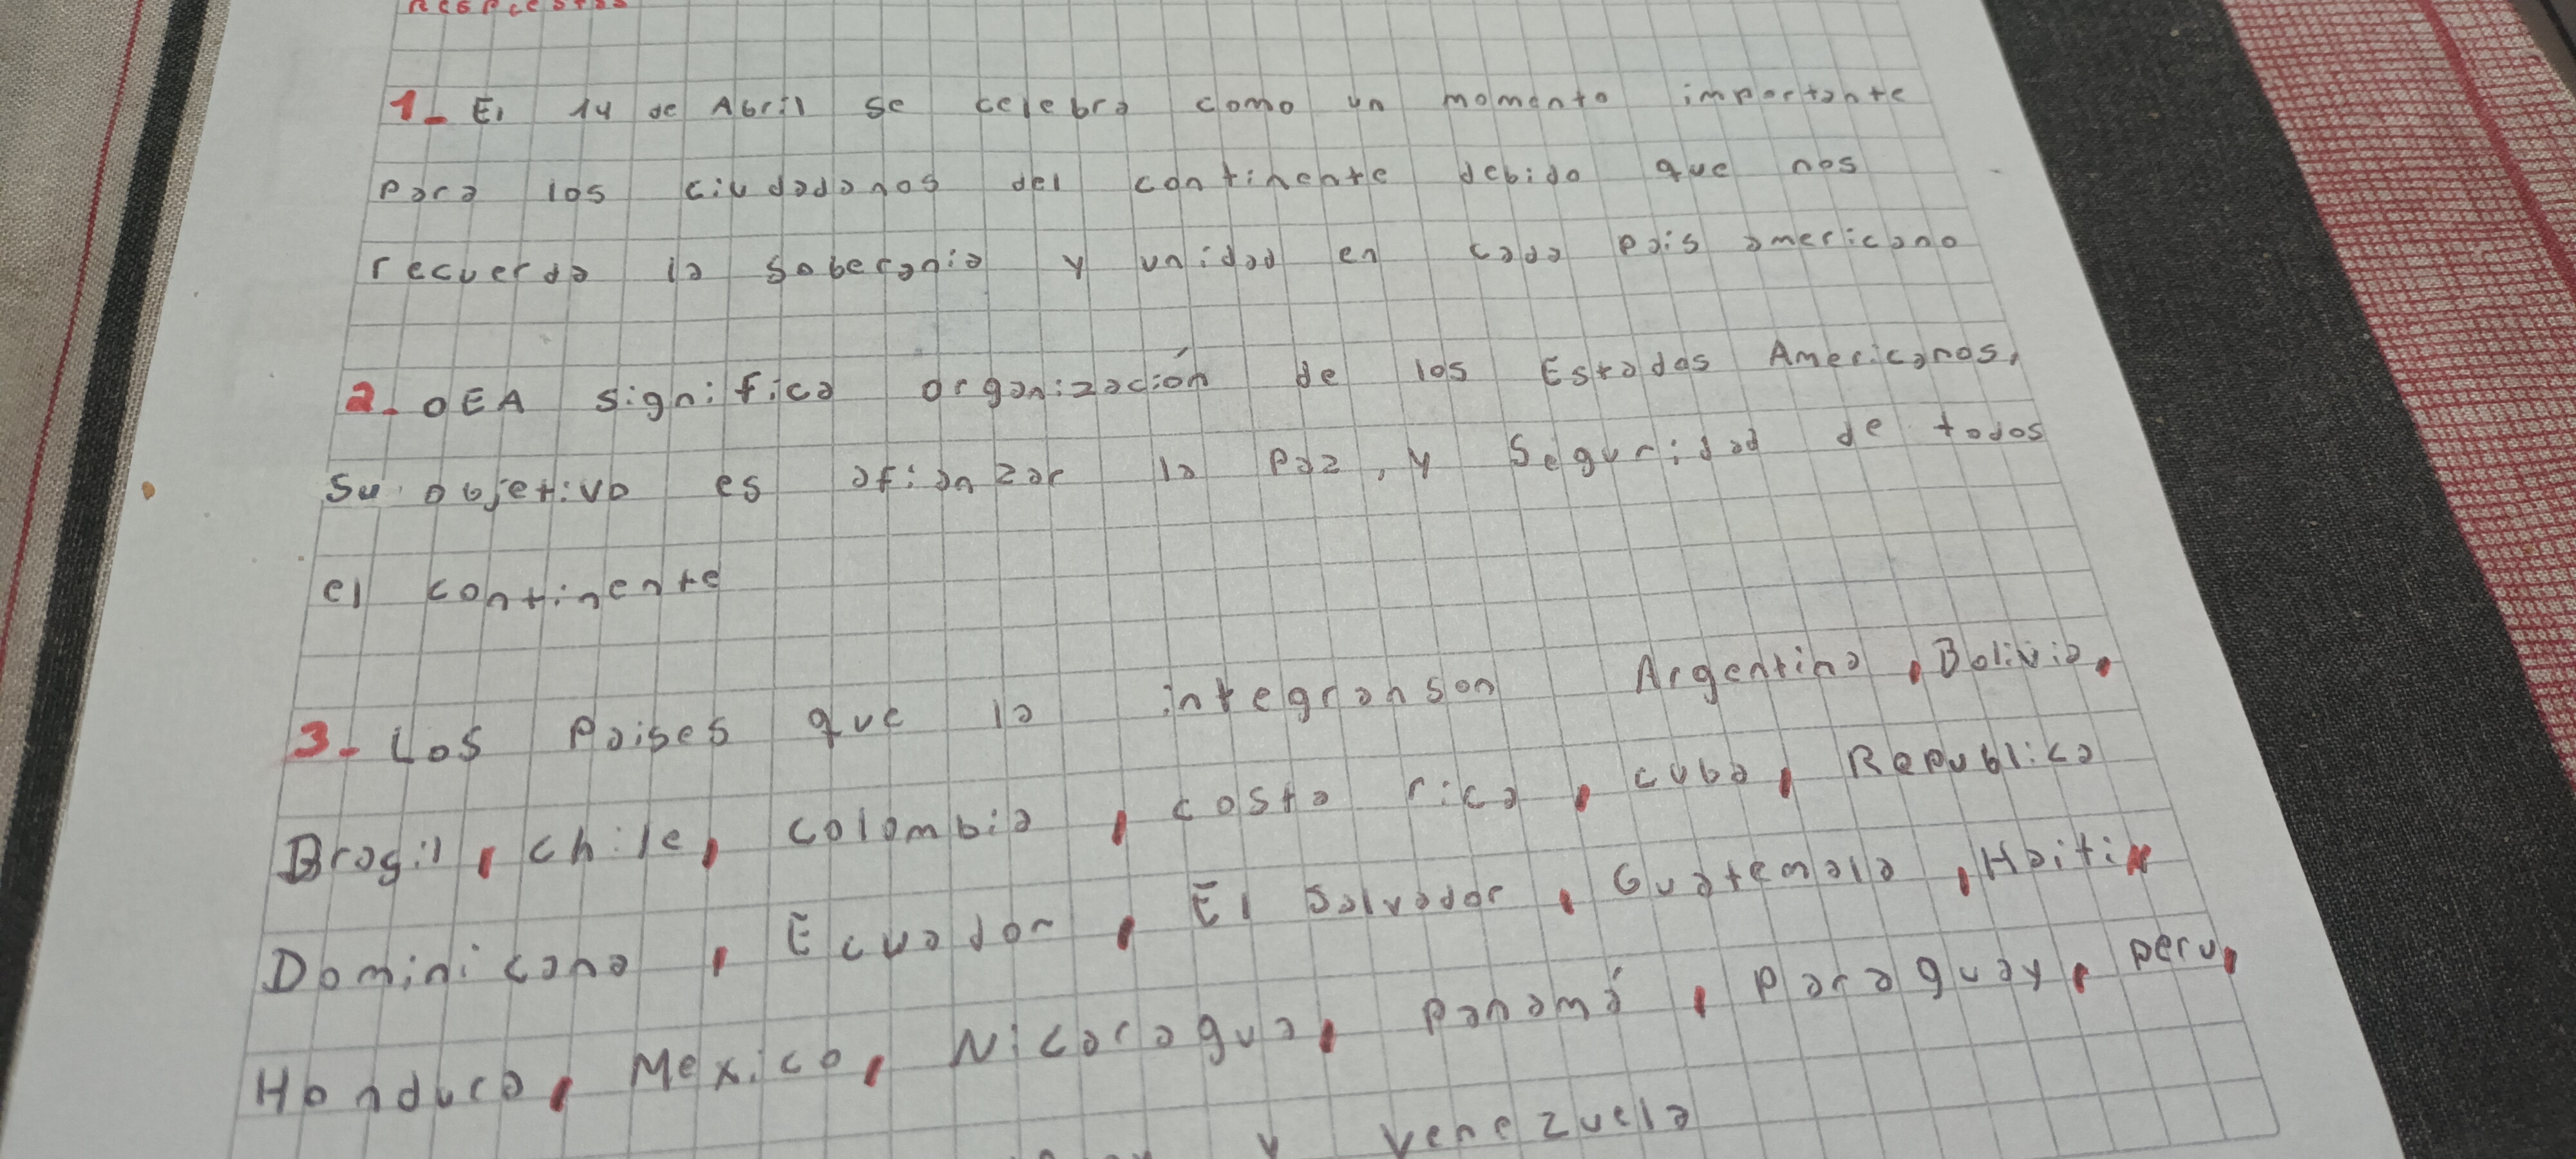 Respuestas
1_ El 14 de Abril se celebra como un momento importante
para los ciudadanos del continente debido que nos
recuerda la soberania y unidad en cada pais americano
2. OEA significa organización de los Estados Americanos,
Su objetivo es afianzar la Paz, y Seguridad de todos
el continente
3- Los Paises que la integranson Argentina, Bolivia,
Brasil, chile, colombia, costa rica, cuba, Republica
Dominicana, Ecuador, El Salvador, Guatemala, Haiti,
Hondura, Mexico, Nicaragua, Panamá, Paraguay, peru,
y venezuela